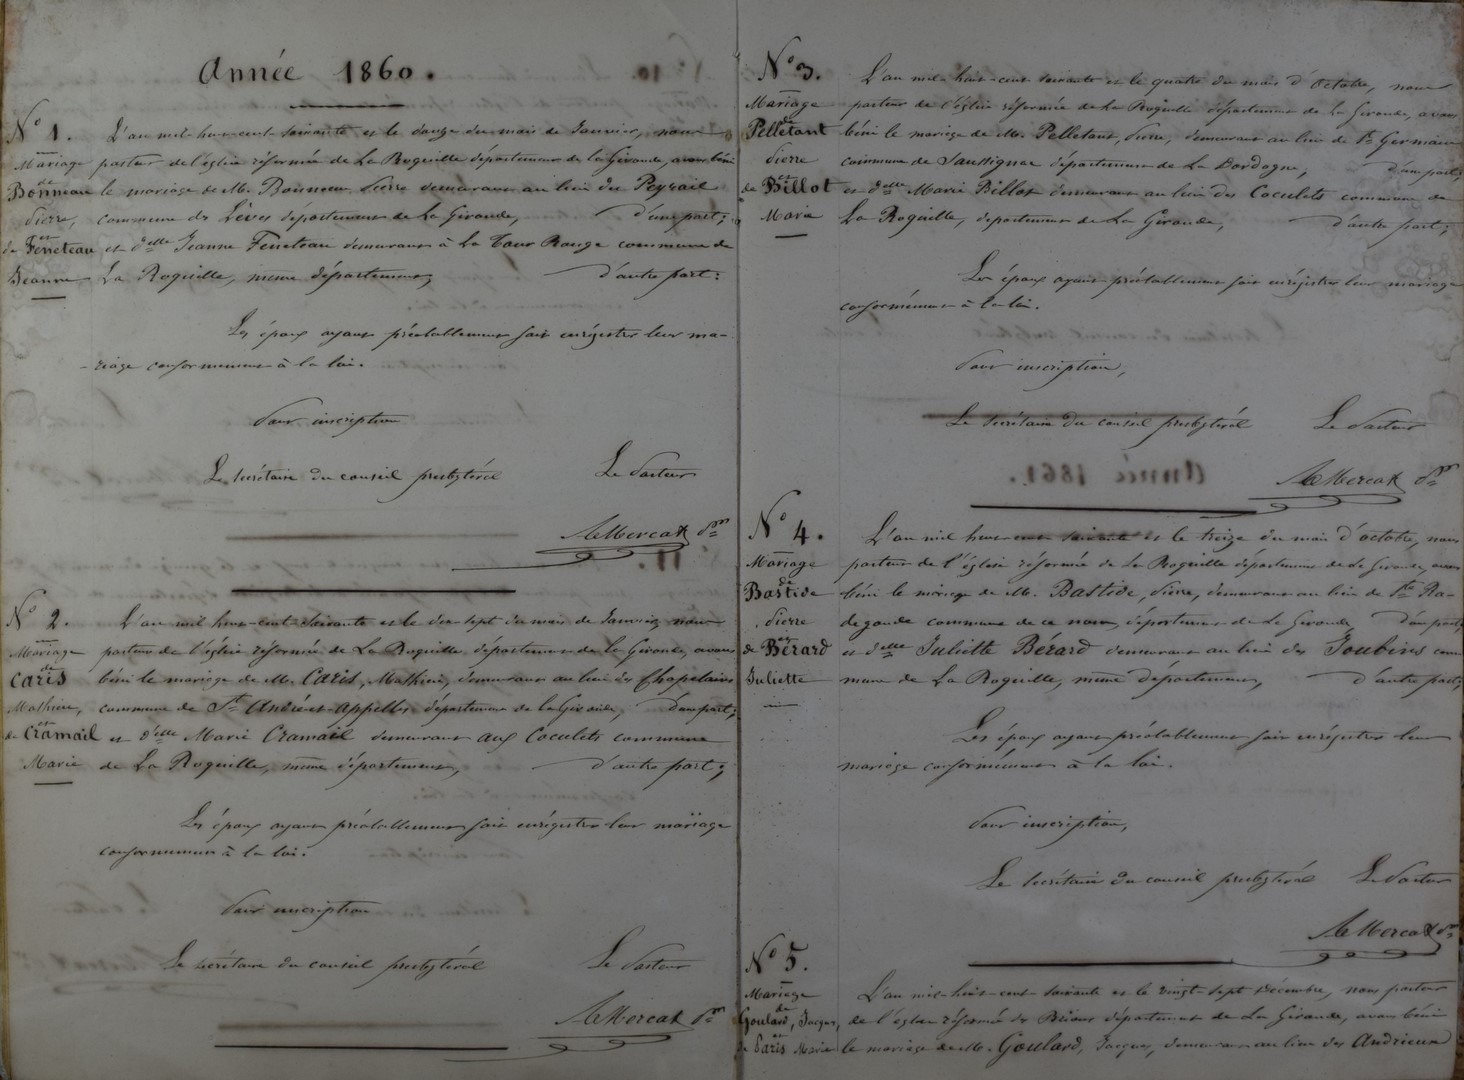 Année 1860.
N° 1.
Mariage
de
Bonneau
Pierre,
et
de Feneteau
Jeanne
L'an mil-huit-cent-soixante et le douze du mois de Janvier, nous
pasteur de l'église réformée de La Roquille département de la Gironde, avons béni
le mariage de Mr. Bonneau, Pierre demeurant au lieu du Peyrail
commune des Lèves département de La Gironde, d'une part;
et delle Jeanne Feneteau demeurant à La Tour Rouge commune de
La Roquille, meme département, d'autre part:
Les époux ayant préalablement fait enrégistrer leur ma-
-riage conformement à la loi.
Pour inscription
Le Secrétaire du conseil presbytéral Le Pasteur
Mercat
N° 2.
Mariage
de
Caris
Mathieu,
et
de Cramail
Marie
L'an mil huit-cent-soixante et le dix-sept du mois de Janvier, nous
pasteur de l'église réformée de La Roquille, département de la Gironde, avons
béni le mariage de Mr. Caris, Mathieu, demeurant au lieu des Chapelains
commune de St. André-et-Appelles département de la Gironde, d'une part;
et d'elle Marie Cramail demeurant aux Coculets commune
de La Roquille, même département, d'autre part;
Les époux ayant préalablement fait enrégistrer leur mariage
conformement à la loi.
Pour inscription
Le secrétaire du conseil presbytéral Le Pasteur
Mercat
N° 3.
Mariage
de
Pelletant
Pierre
et
de Billot
Marie
L'an mil-huit-cent soixante et le quatre du mois d'Octobre, nous
pasteur de l'église réformée de La Roquille département de La Gironde, avons
béni le mariage de Mr. Pelletant, Pierre, demeurant au lieu de St. Germain
commune de Saussignac département de La Dordogne, d'une part;
et delle Marie Billot demeurant au lieu des Coculets commune de
La Roquille, département de La Gironde, d'autre part;
Les époux ayant préalablement fait enrégistrer leur mariage
conformément à la loi.
Pour inscription,
Le secrétaire du conseil presbytéral Le Pasteur
Mercat
N° 4.
Mariage
de
Bastide
Pierre
et
de Bérard
Juliette
L'an mil huit-cent soixante et le treize du mois d'octobre, nous
pasteur de l'église réformée de La Roquille département de La Gironde, avons
béni le mariage de Mr. Bastide, Pierre, demeurant au lieu de Ste Ra-
degonde commune de ce nom, département de La Gironde d'une part;
et delle Juliette Bérard demeurant au lieu des Joubins com
mune de La Roquille, même département, d'autre part;
Les époux ayant préalablement fait enrégistrer leur
mariage conformément à la loi.
Pour inscription,
Le Secrétaire du conseil presbytéral Le Pasteur
Mercat
N° 5.
Mariage
de
Goulard, Jacques,
et
de Paris Marie
L'an mil-huit-cent-soixante et le vingt-sept Décembre, nous pasteur
de l'église réformée de département de La Gironde, avons béni
le mariage de Mr. Goulard, Jacques, demeurant au lieu des Andrieux